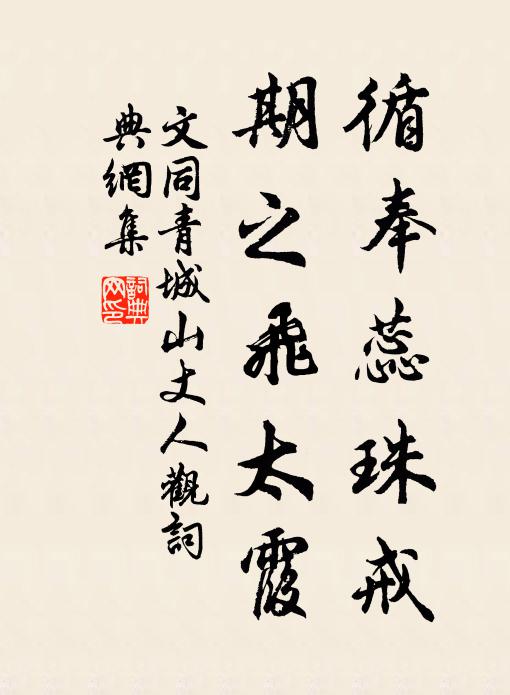 循奉蕊珠戒
期之飛太霞
文同青城山丈人觀詞
典網集
詞典網印